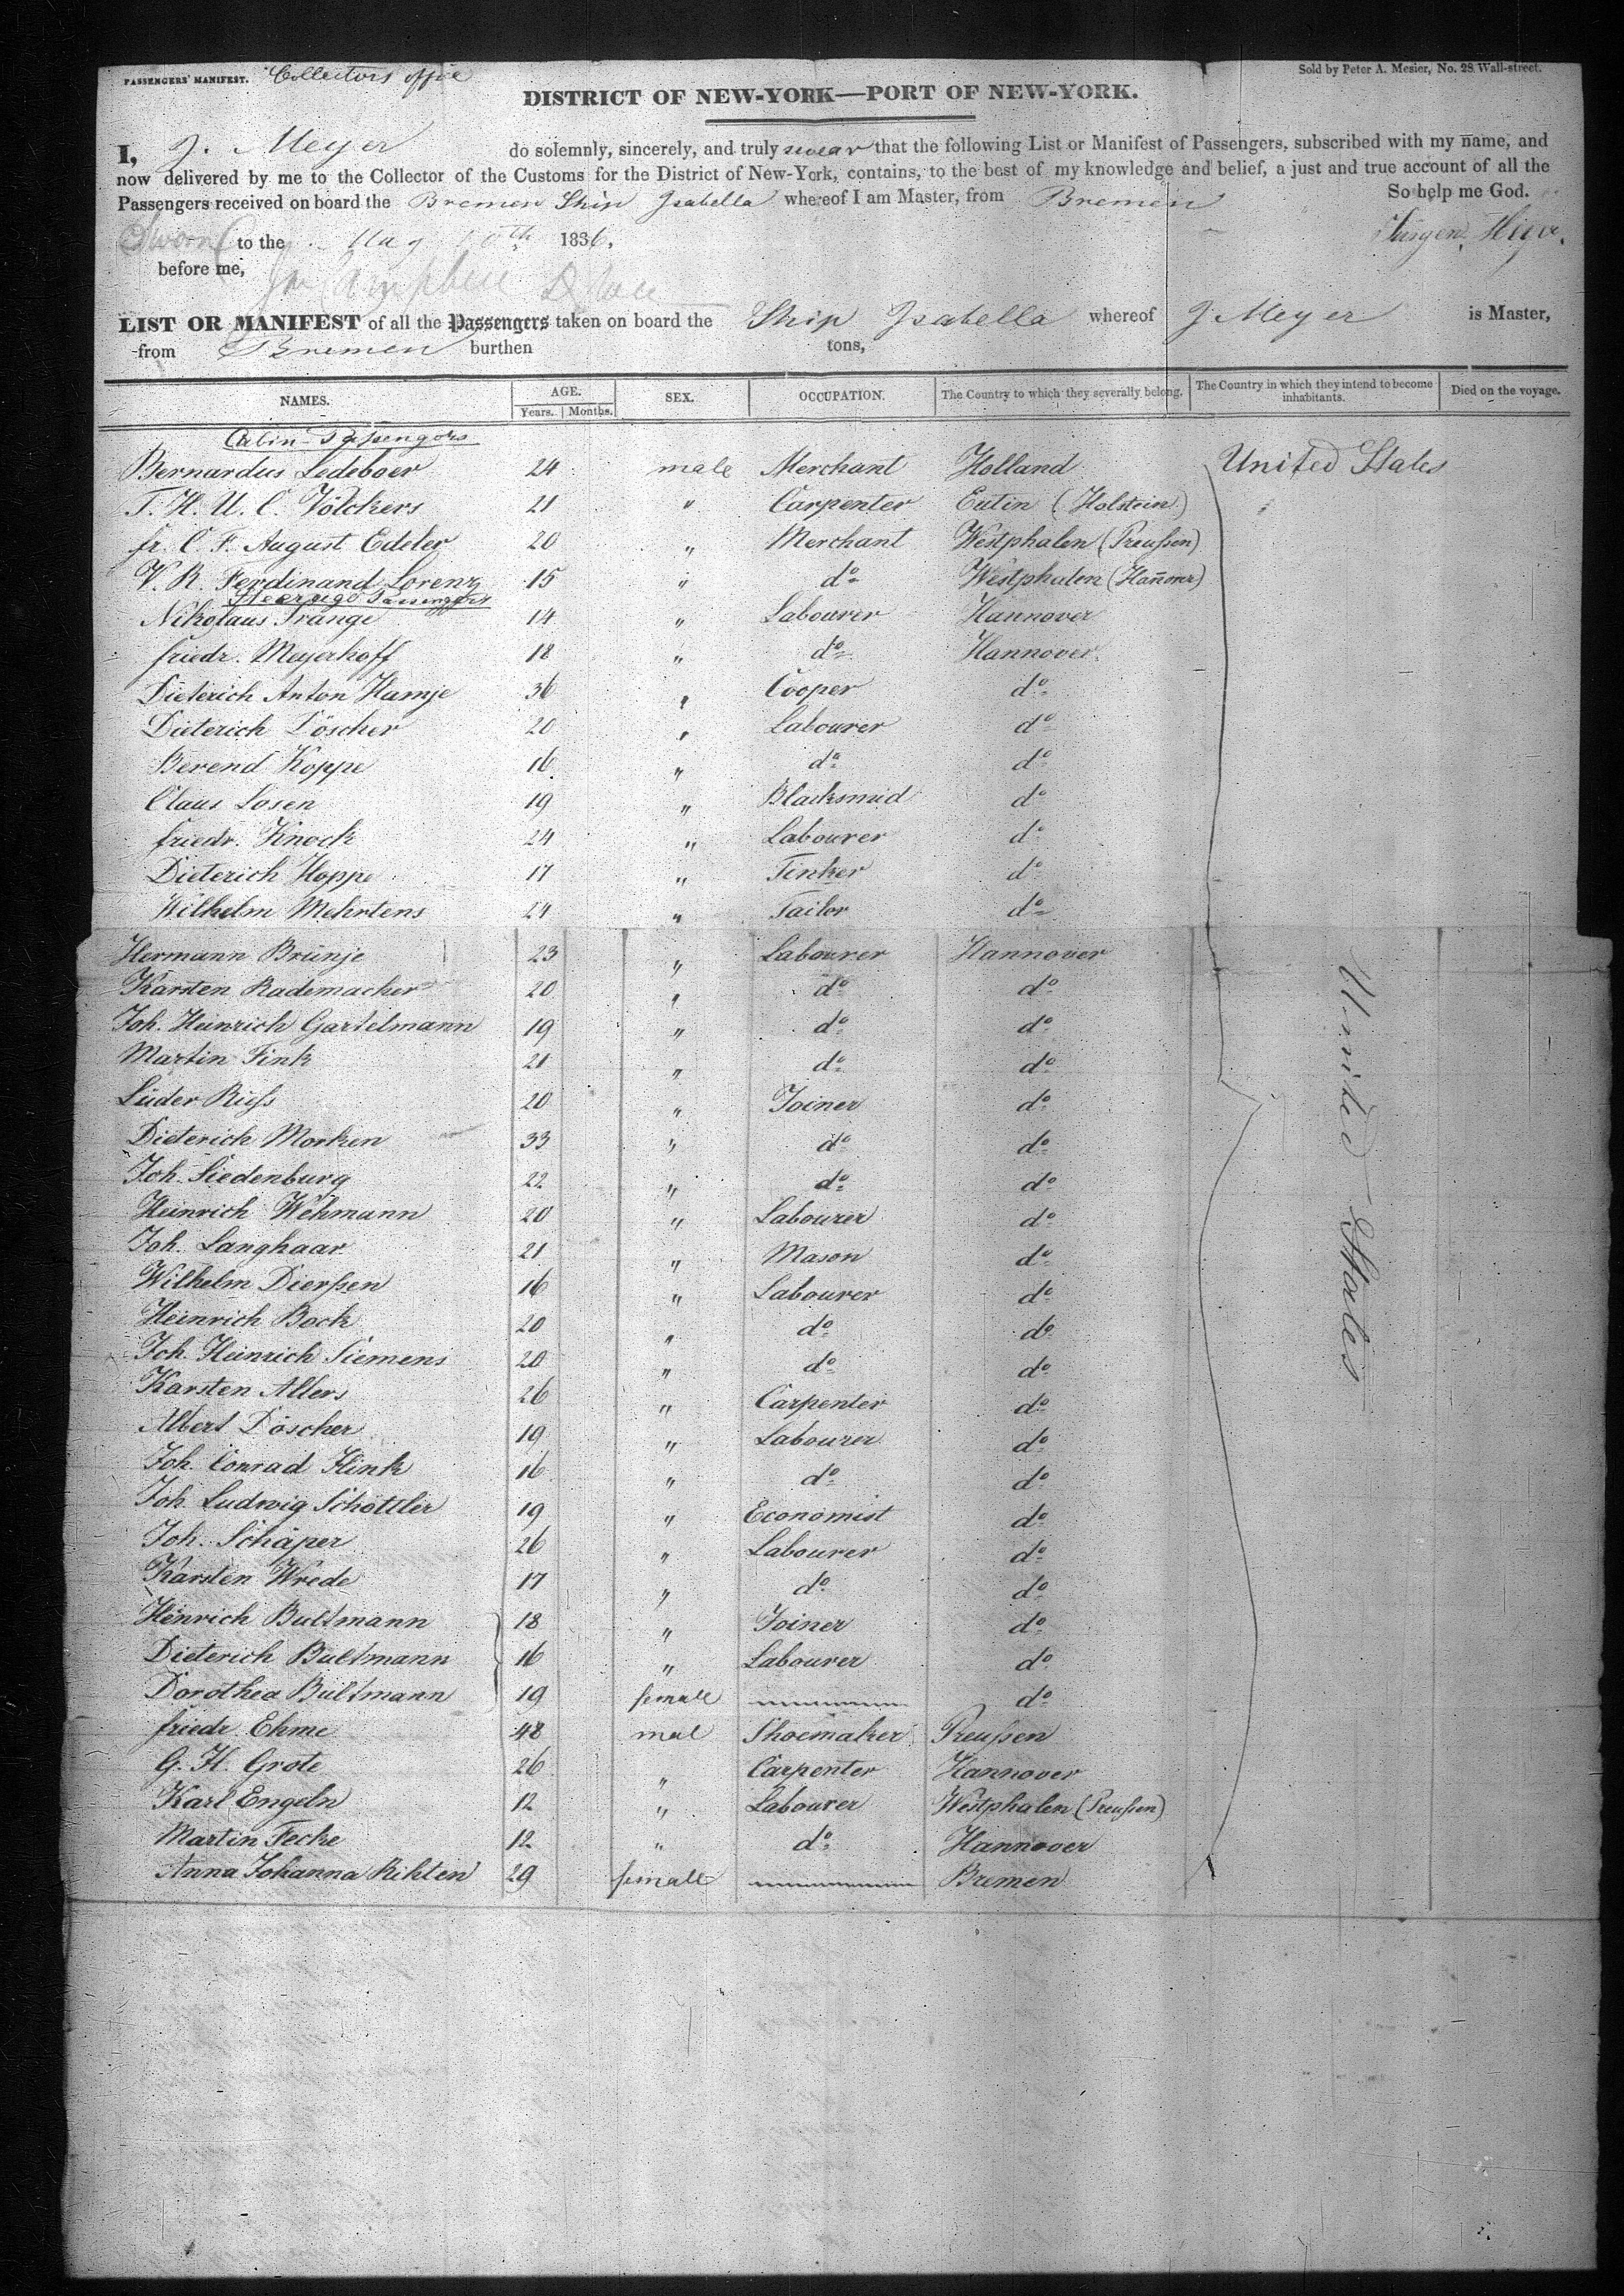 PASSENGERS' MANIFEST. Collectors office
Sold by Peter A. Mesier, No. 28 Wall-street.
DISTRICT OF NEW-YORK—PORT OF NEW-YORK.
I, J. Meyer do solemnly, sincerely, and truly swear that the following List or Manifest of Passengers, subscribed with my name, and
now delivered by me to the Collector of the Customs for the District of New-York, contains, to the best of my knowledge and belief, a just and true account of all the
Passengers received on board the Bremen Ship Isabella whereof I am Master, from Bremen So help me God.
Sworn to the May 1836,
before me,
LIST OR MANIFEST of all the Passengers taken on board the Ship Isabella whereof J Meyer is Master,
from Bremen burthen tons,
NAMES. AGE. Years. Months. SEX. OCCUPATION. The Country to which they severally belong. The Country in which they intend to become inhabitants. Died on the voyage.
Cabin Passengers
Bernardus Ledeboer 24 male Merchant Holland United States
T. H. U. C. Völckers 21 " Carpenter Eutin (Holstein)
fr. C. F. August Edeler 20 " Merchant Westphalen (Preußen)
V. R. Ferdinand Lorenz 15 " do Westphalen (Hañover)
Steerage Passengers
Nikolaus Prange 14 " Labourer Hannover
friedr. Meyerhoff 18 " do Hannover
Dieterich Anton Hamje 36 " Cooper do
Dieterich Döscher 20 " Labourer do
Berend Koppe 16 " do do
Claus Losen 19 " Blacksmid do
friedr. Knock 24 " Labourer do
Dieterich Hoppe 17 " Tinker do
Wilhelm Mehrtens 24 " Tailor do
Hermann Brünje 23 " Labourer Hannover
Karsten Rademacher 20 " do do
Joh. Heinrich Gartelmann 19 " do do
Martin Fink 21 " do do
Lüder Rüss 20 " Joiner do
Dieterich Morken 33 " do do
Joh. Siedenburg 22 " do do
Heinrich Wehmann 20 " Labourer do
Joh. Langhaar 21 " Mason do
Wilhelm Dierßen 16 " Labourer do
Heinrich Bock 20 " do do
Joh. Heinrich Siemens 20 " do do
Karsten Allers 26 " Carpenter do
Albert Döscher 19 " Labourer do
Joh. Conrad Flink 16 " do do
Joh. Ludwig Schöttler 19 " Economist do
Joh. Schäper 26 " Labourer do
Karsten Wrede 17 " do do
Henrich Bultmann 18 " Joiner do
Dieterich Bultmann 16 " Labourer do
Dorothea Bultmann 19 female do
friedr. Ehme 48 mal Shoemaker Preußen
G. H. Grote 26 " Carpenter Hannover
Karl Engeln 12 " Labourer Westphalen (Preußen)
Martin Fecke 12 " do Hannover
Anna Johanna Rihten 29 female Bremen
United States